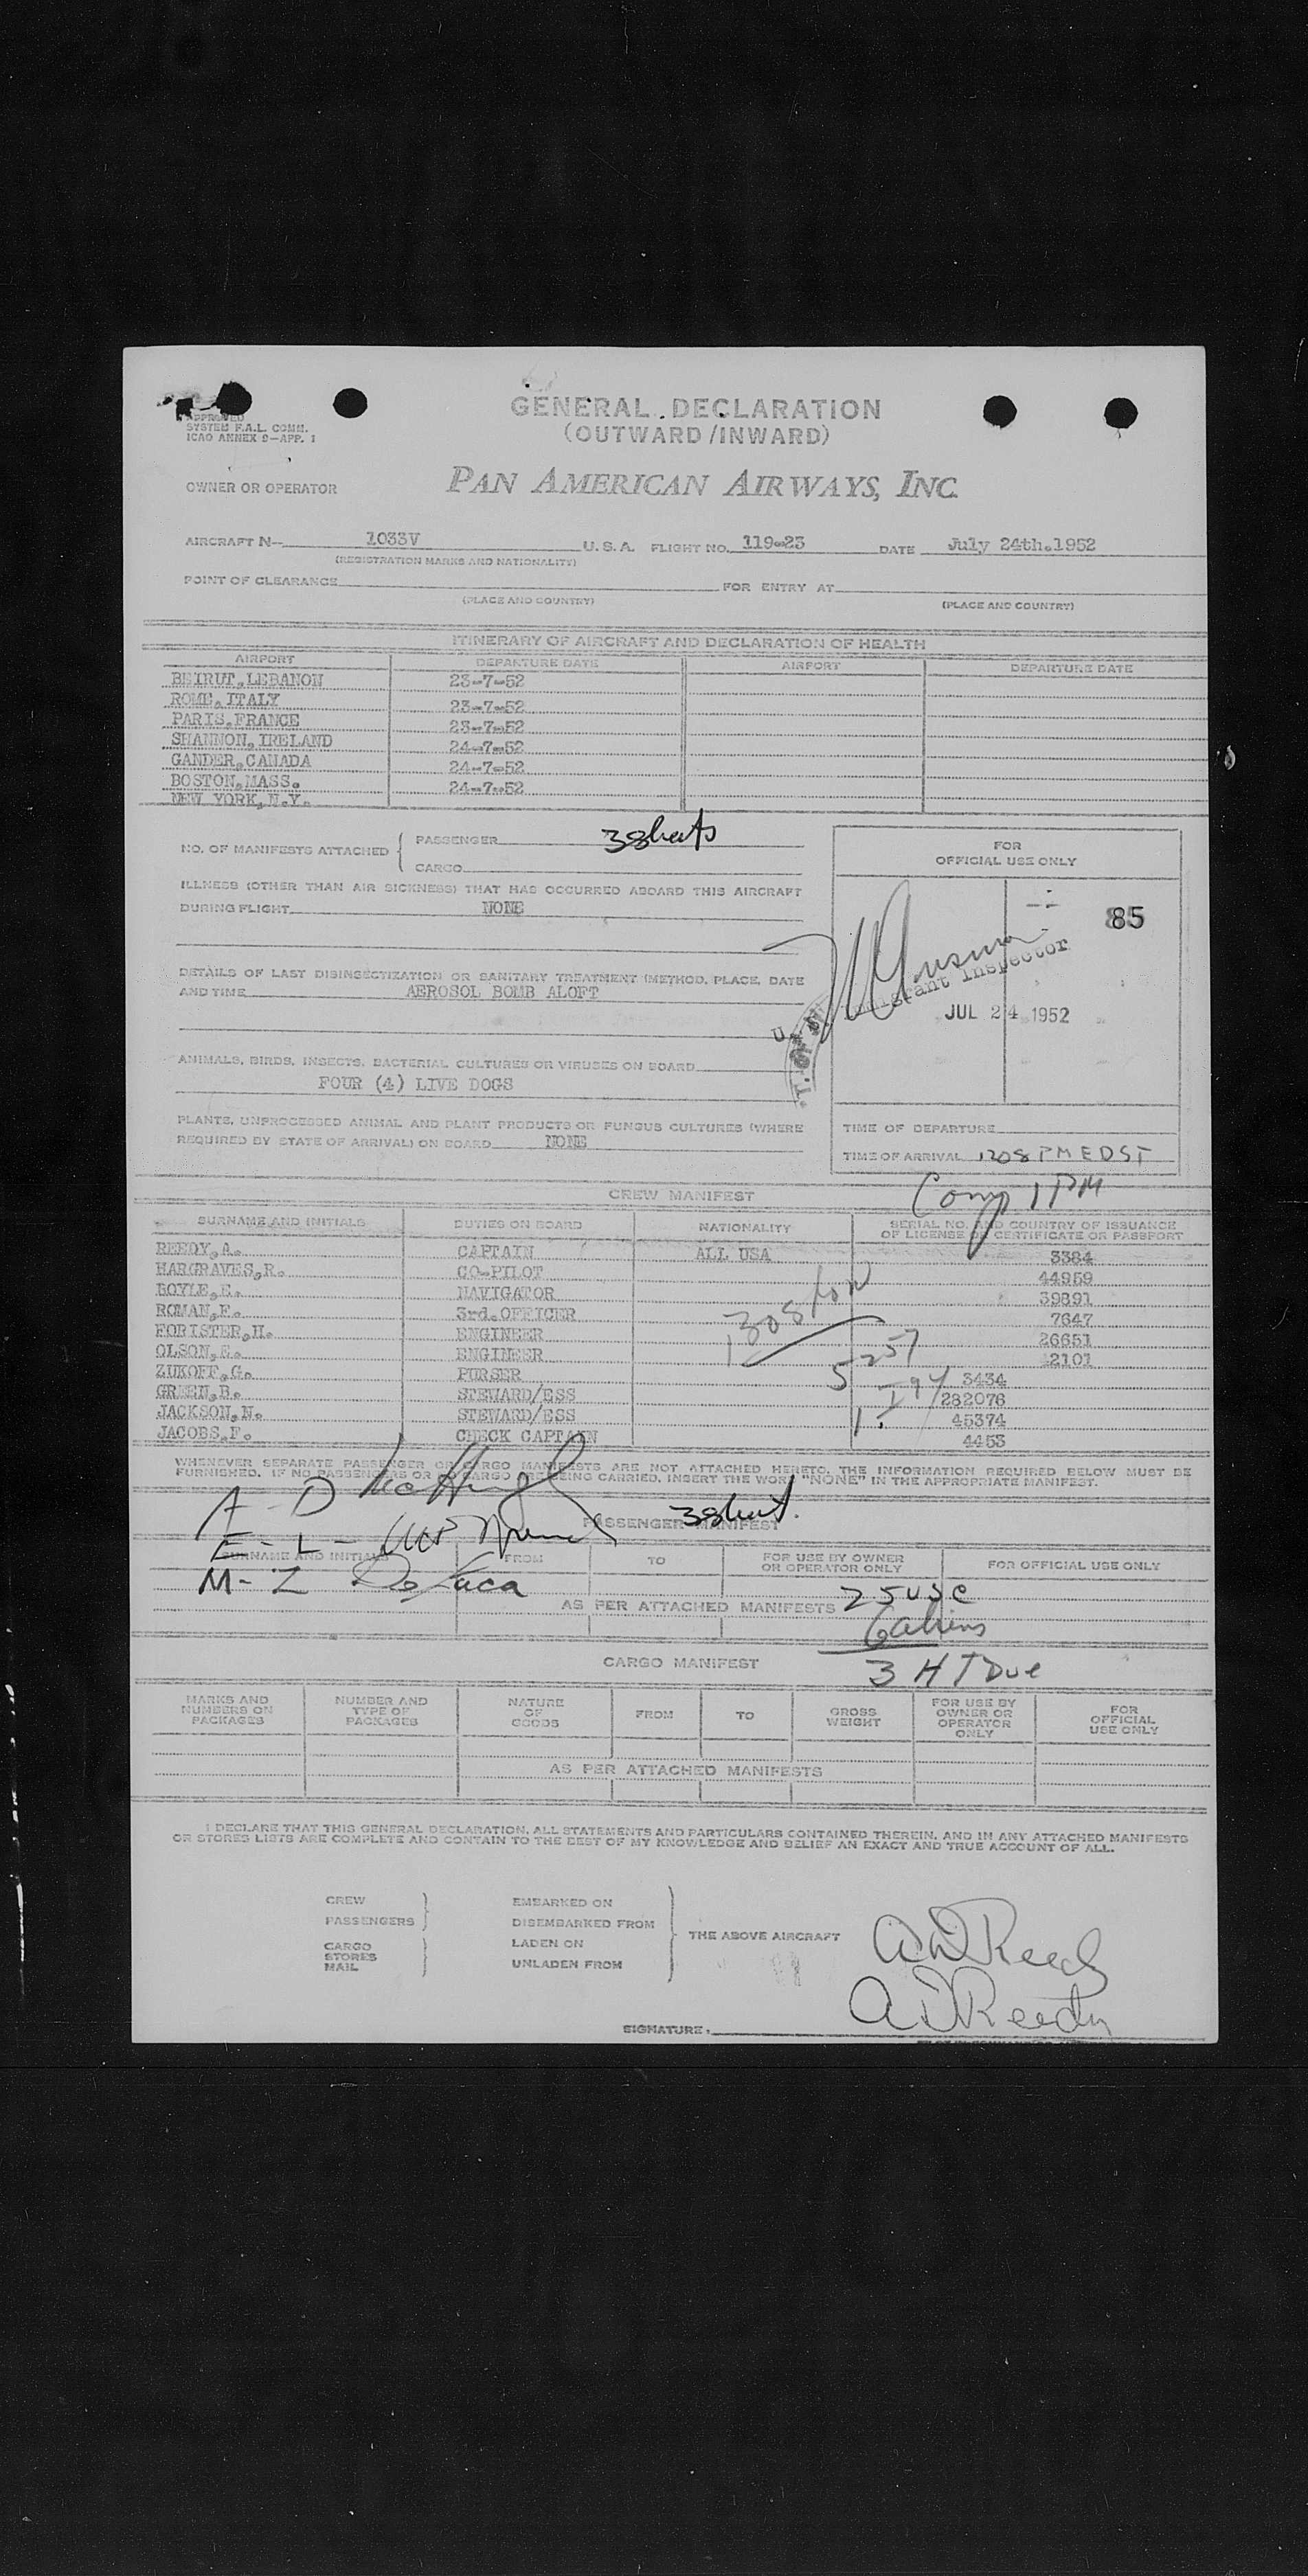 APPROVED
SYSTEM F.A.L. COMM.
ICAO ANNEX 9-APP. 1
GENERAL DECLARATION
(OUTWARD/INWARD)
OWNER OR OPERATOR PAN AMERICAN AIRWAYS, INC.
AIRCRAFT N- 1033V U.S.A. FLIGHT NO. 119-23 DATE July 24th.1952
(REGISTRATION MARKS AND NATIONALITY)
POINT OF CLEARANCE FOR ENTRY AT
(PLACE AND COUNTRY) (PLACE AND COUNTRY)
ITINERARY OF AIRCRAFT AND DECLARATION OF HEALTH
AIRPORT DEPARTURE DATE AIRPORT DEPARTURE DATE
BEIRUT,LEBANON 23-7-52
ROME,ITALY 23-7-52
PARIS,FRANCE 23-7-52
SHANNON,IRELAND 24-7-52
GANDER,CANADA 24-7-52
BOSTON,MASS. 24-7-52
NEW YORK,N.Y.
NO. OF MANIFESTS ATTACHED PASSENGER 3 sheets
CARGO
ILLNESS (OTHER THAN AIR SICKNESS) THAT HAS OCCURRED ABOARD THIS AIRCRAFT
DURING FLIGHT NONE
DETAILS OF LAST DISINSECTIZATION OR SANITARY TREATMENT (METHOD, PLACE, DATE
AND TIME AEROSOL BOMB ALOFT
ANIMALS, BIRDS, INSECTS, BACTERIAL CULTURES OR VIRUSES ON BOARD
FOUR (4) LIVE DOGS
PLANTS, UNPROCESSED ANIMAL AND PLANT PRODUCTS OR FUNGUS CULTURES (WHERE
REQUIRED BY STATE OF ARRIVAL) ON BOARD NONE
FOR
OFFICIAL USE ONLY
85
Immigrant Inspector
JUL 24 1952
TIME OF DEPARTURE
TIME OF ARRIVAL 1208 PM EDST
Comp 1 PM
CREW MANIFEST
SURNAME AND INITIALS DUTIES ON BOARD NATIONALITY SERIAL NO. AND COUNTRY OF ISSUANCE
OF LICENSE OR CERTIFICATE OR PASSPORT
REEDY,A. CAPTAIN ALL USA 3384
HARGRAVES,R. CO-PILOT 44959
BOYLE,E. NAVIGATOR 39891
ROMAN,F. 3rd.OFFICER 7647
FORISTER,H. ENGINEER 26651
OLSON,E. ENGINEER 2101
ZUKOFF,G. PURSER 3434
GREEN,B. STEWARD/ESS 282076
JACKSON,N. STEWARD/ESS 45374
JACOBS,F. CHECK CAPTAIN 4453
WHENEVER SEPARATE PASSENGER OR CARGO MANIFESTS ARE NOT ATTACHED HERETO, THE INFORMATION REQUIRED BELOW MUST BE
FURNISHED. IF NO PASSENGERS OR CARGO ARE BEING CARRIED, INSERT THE WORD "NONE" IN THE APPROPRIATE MANIFEST.
A - D
PASSENGER MANIFEST 3 sheet.
E - L -
SURNAME AND INITIALS FROM TO FOR USE BY OWNER
OR OPERATOR ONLY FOR OFFICIAL USE ONLY
M - Z De Luca
AS PER ATTACHED MANIFESTS 25 USC
6 aliens
CARGO MANIFEST 3 HT Due
MARKS AND
NUMBERS ON
PACKAGES NUMBER AND
TYPE OF
PACKAGES NATURE
OF
GOODS FROM TO GROSS
WEIGHT FOR USE BY
OWNER OR
OPERATOR
ONLY FOR
OFFICIAL
USE ONLY
AS PER ATTACHED MANIFESTS
I DECLARE THAT THIS GENERAL DECLARATION, ALL STATEMENTS AND PARTICULARS CONTAINED THEREIN, AND IN ANY ATTACHED MANIFESTS
OR STORES LISTS ARE COMPLETE AND CONTAIN TO THE BEST OF MY KNOWLEDGE AND BELIEF AN EXACT AND TRUE ACCOUNT OF ALL.
CREW EMBARKED ON
PASSENGERS DISEMBARKED FROM
THE ABOVE AIRCRAFT
CARGO LADEN ON
STORES
MAIL UNLADEN FROM
A D Reedy
A D Reedy
SIGNATURE.